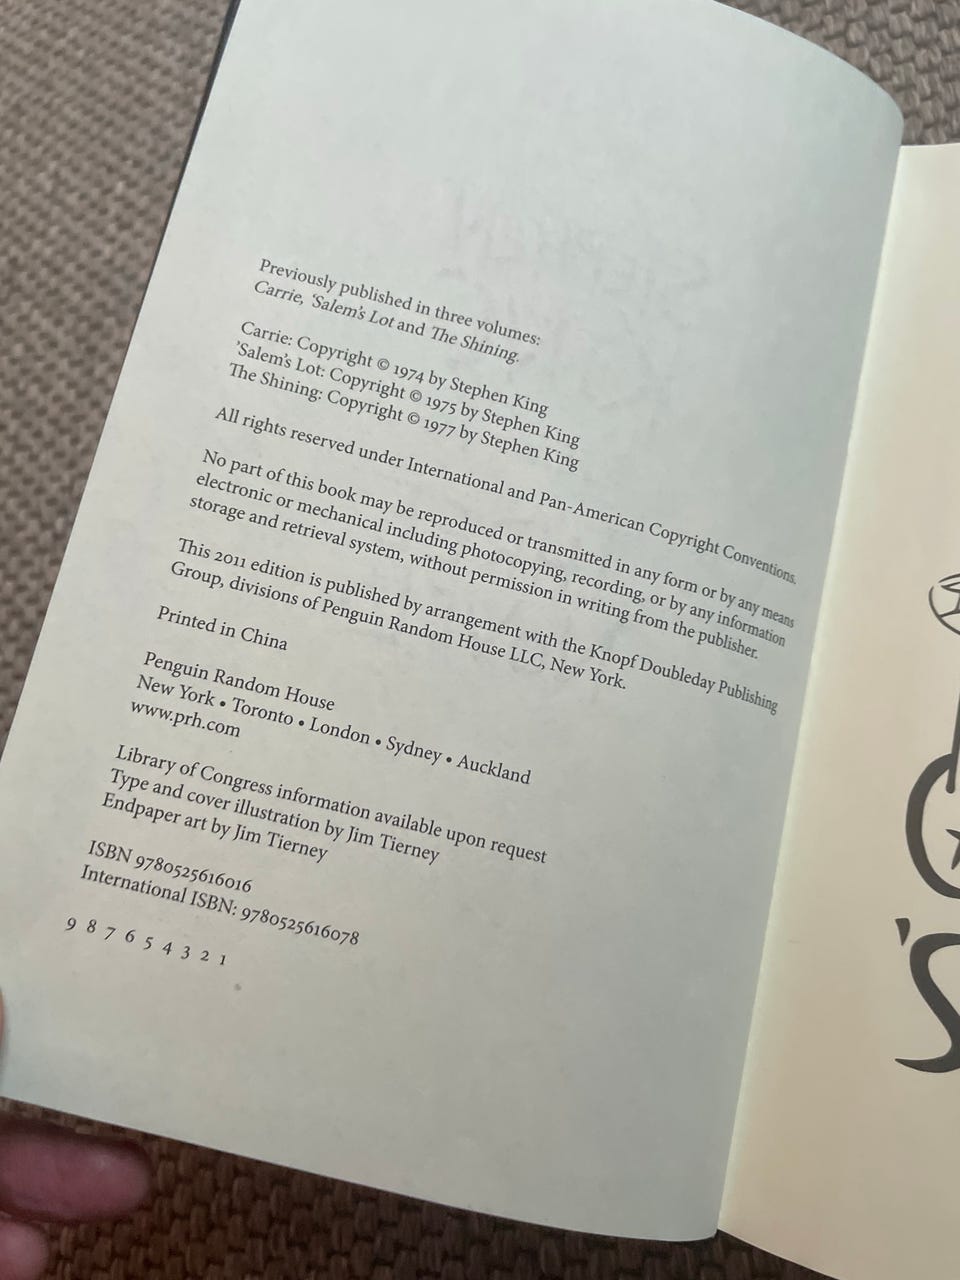 Previously published in three volumes:
Carrie, ‘Salem’s Lot and The Shining.
Carrie: Copyright © 1974 by Stephen King
’Salem’s Lot: Copyright © 1975 by Stephen King
The Shining: Copyright © 1977 by Stephen King
All rights reserved under International and Pan-American Copyright Conventions.
No part of this book may be reproduced or transmitted in any form or by any means
electronic or mechanical including photocopying, recording, or by any information
storage and retrieval system, without permission in writing from the publisher.
This 2011 edition is published by arrangement with the Knopf Doubleday Publishing
Group, divisions of Penguin Random House LLC, New York.
Printed in China
Penguin Random House
New York • Toronto • London • Sydney • Auckland
www.prh.com
Library of Congress information available upon request
Type and cover illustration by Jim Tierney
Endpaper art by Jim Tierney
ISBN 9780525616016
International ISBN: 9780525616078
9 8 7 6 5 4 3 2 1
’S